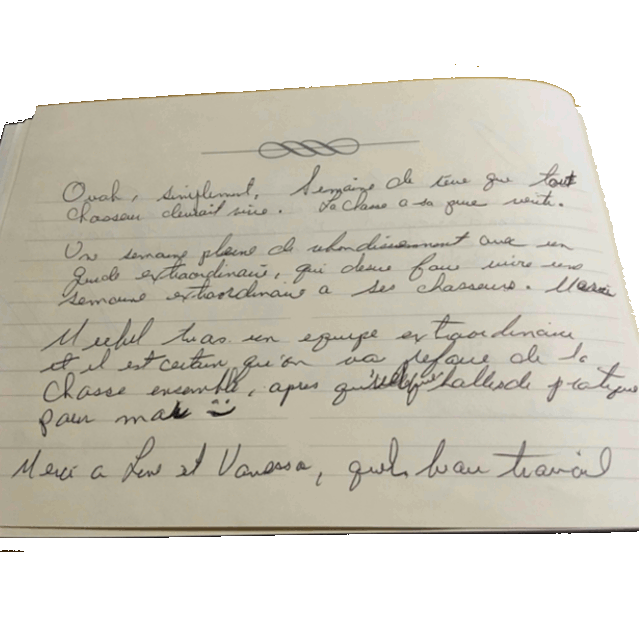 Ouah, simplement, Semaine de reve que tout
chasseur devrait vivre. La chasse a sa pure verite.
Une semaine pleine de rebondissement avec un
guide extraordinaire, qui desire faire vivre une
semaine extraordinaire a ses chasseurs. Merci
Michel tu as un equipe extraordinaire
et il est certain qu'on va refaire de la
chasse ensemble, apres balles de pratique
pour moi
Merci a Line et Vanessa, quels beau travail